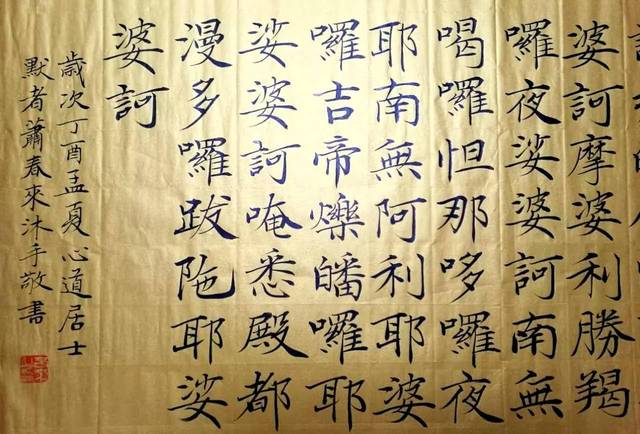 婆訶摩婆利勝羯
囉夜娑婆訶南無
喝囉怛那哆囉夜
耶南無阿利耶婆
囉吉帝爍皤囉耶
娑婆訶唵悉殿都
漫多囉跋陁耶娑
婆訶
歲次丁酉孟夏心道居士
默者蕭春來沐手敬書